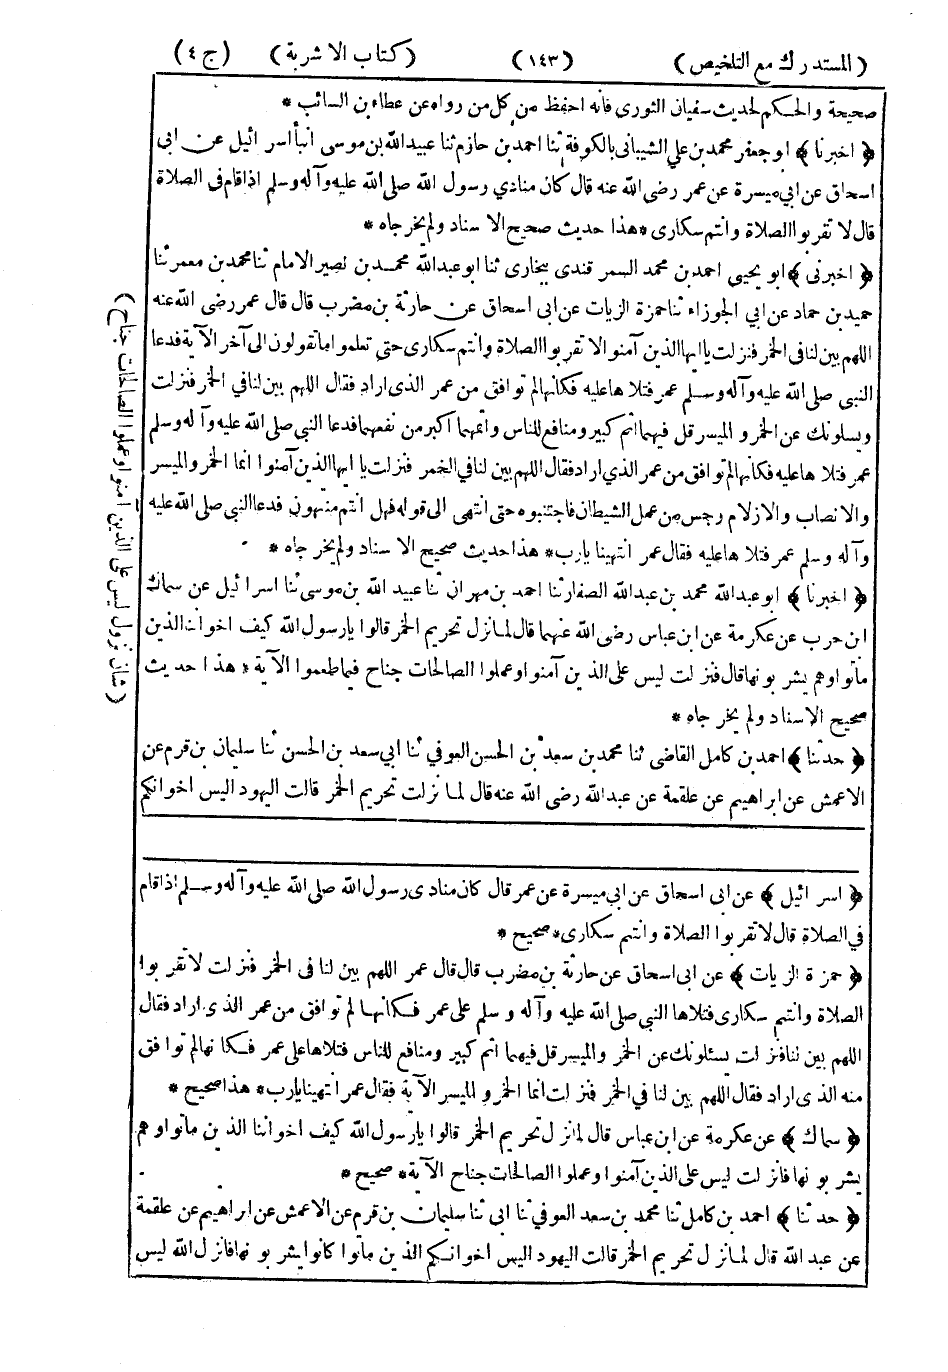 (المستدرك مع التلخيص) (١٤٣) (كتاب الاشربة) (ج ٤)
صحيحة والحكم لحديث سفيان الثورى فانه احفظ من كل من رواه عن عطاء بن السائب *
﴿ اخبرنا ﴾ ابو جعفر محمد بن علي الشيبانى بالكوفة ثنا احمد بن حازم ثنا عبيد الله بن موسى انبأ اسرائيل عن ابى
اسحاق عن ابي ميسرة عن عمر رضى الله عنه قال كان منادي رسول الله صلى الله عليه وآله وسلم اذا قام فى الصلاة
قال لا تقربوا الصلاة وانتم سكارى * هذا حديث صحيح الاسناد ولم يخرجاه *
﴿ اخبرنى ﴾ ابو يحيى احمد بن محمد السمرقندى ببخارى ثنا ابو عبدالله محمد بن نصير الامام ثنا محمد بن معمر ثنا
حميد بن حماد عن ابي الجوزاء ثنا حمزة الزيات عن ابى اسحاق عن حارثة بن مضرب قال قال عمر رضى الله عنه
اللهم بين لنا فى الخمر فنزلت يا ايها الذين آمنوا لا تقربوا الصلاة وانتم سكارى حتى تعلموا ما تقولون الى آخر الآية فدعا
النبى صلى الله عليه وآله وسلم عمر فتلاها عليه فكأنها لم توافق من عمر الذى اراد فقال اللهم بين لنا في الخمر فنزلت
ويسلونك عن الخمر والميسر قل فيهما اثم كبير ومنافع للناس واثمهما اكبر من نفعهما فدعا النبي صلى الله عليه وآله وسلم
عمر فتلاها عليه فكأنها لم توافق من عمر الذي اراد فقال اللهم بين لنا في الخمر فنزلت يا ايها الذين آمنوا انما الخمر والميسر
والانصاب والازلام رجس من عمل الشيطان فاجتنبوه حتى انتهى الى قوله فهل انتم منتهون فدعا النبى صلى الله عليه
وآله وسلم عمر فتلاها عليه فقال عمر انتهينا يارب * هذا حديث صحيح الاسناد ولم يخرجاه *
﴿ اخبرنا ﴾ ابو عبدالله محمد بن عبدالله الصفار ثنا احمد بن مهران ثنا عبيد الله بن موسى ثنا اسرائيل عن سماك
ابن حرب عن عكرمة عن ابن عباس رضى الله عنهما قال لما نزل تحريم الخمر قالوا يا رسول الله كيف اخواننا الذين
ماتوا وهم يشربونها قال فنزلت ليس على الذين آمنوا وعملوا الصالحات جناح فيما طعموا الآية * هذا حديث
صحيح الاسناد ولم يخرجاه *
﴿ حدثنا ﴾ احمد بن كامل القاضى ثنا محمد بن سعد بن الحسن العوفي ثنا ابي سعد بن الحسن ثنا سليمان بن قرم عن
الاعمش عن ابراهيم عن علقمة عن عبد الله رضى الله عنه قال لما نزلت تحريم الخمر قالت اليهود اليس اخوانكم
(شان نزول ليس على الذين آمنوا وعملوا الصالحات جناح)
﴿ اسرائيل ﴾ عن ابى اسحاق عن ابي ميسرة عن عمر قال كان منادى رسول الله صلى الله عليه وآله وسلم اذا قام
في الصلاة قال لا تقربوا الصلاة وانتم سكارى * صحيح *
﴿ حمزة الزيات ﴾ عن ابى اسحاق عن حارثة بن مضرب قال قال عمر اللهم بين لنا فى الخمر فنزلت لا تقربوا
الصلاة وانتم سكارى فتلاها النبي صلى الله عليه وآله وسلم على عمر فكأنها لم توافق من عمر الذى اراد فقال
اللهم بين لنا فنزلت يسئلونك عن الخمر والميسر قل فيهما اثم كبير ومنافع للناس فتلاها على عمر فكانها لم توافق
منه الذى اراد فقال اللهم بين لنا في الخمر فنزلت انما الخمر والميسر الآية فقال عمر انتهينا يارب * هذا صحيح *
﴿ سماك ﴾ عن عكرمة عن ابن عباس قال لما نزل تحريم الخمر قالوا يا رسول الله كيف اخواننا الذين ماتوا وهم
يشربونها فانزلت ليس على الذين آمنوا وعملوا الصالحات جناح الآية * صحيح *
﴿ حدثنا ﴾ احمد بن كامل ثنا محمد بن سعد العوفي ثنا ابى ثنا سليمان بن قرم عن الاعمش عن ابراهيم عن علقمة
عن عبد الله قال لما نزل تحريم الخمر قالت اليهود اليس اخوانكم الذين ماتوا كانوا يشربونها فانزل الله ليس